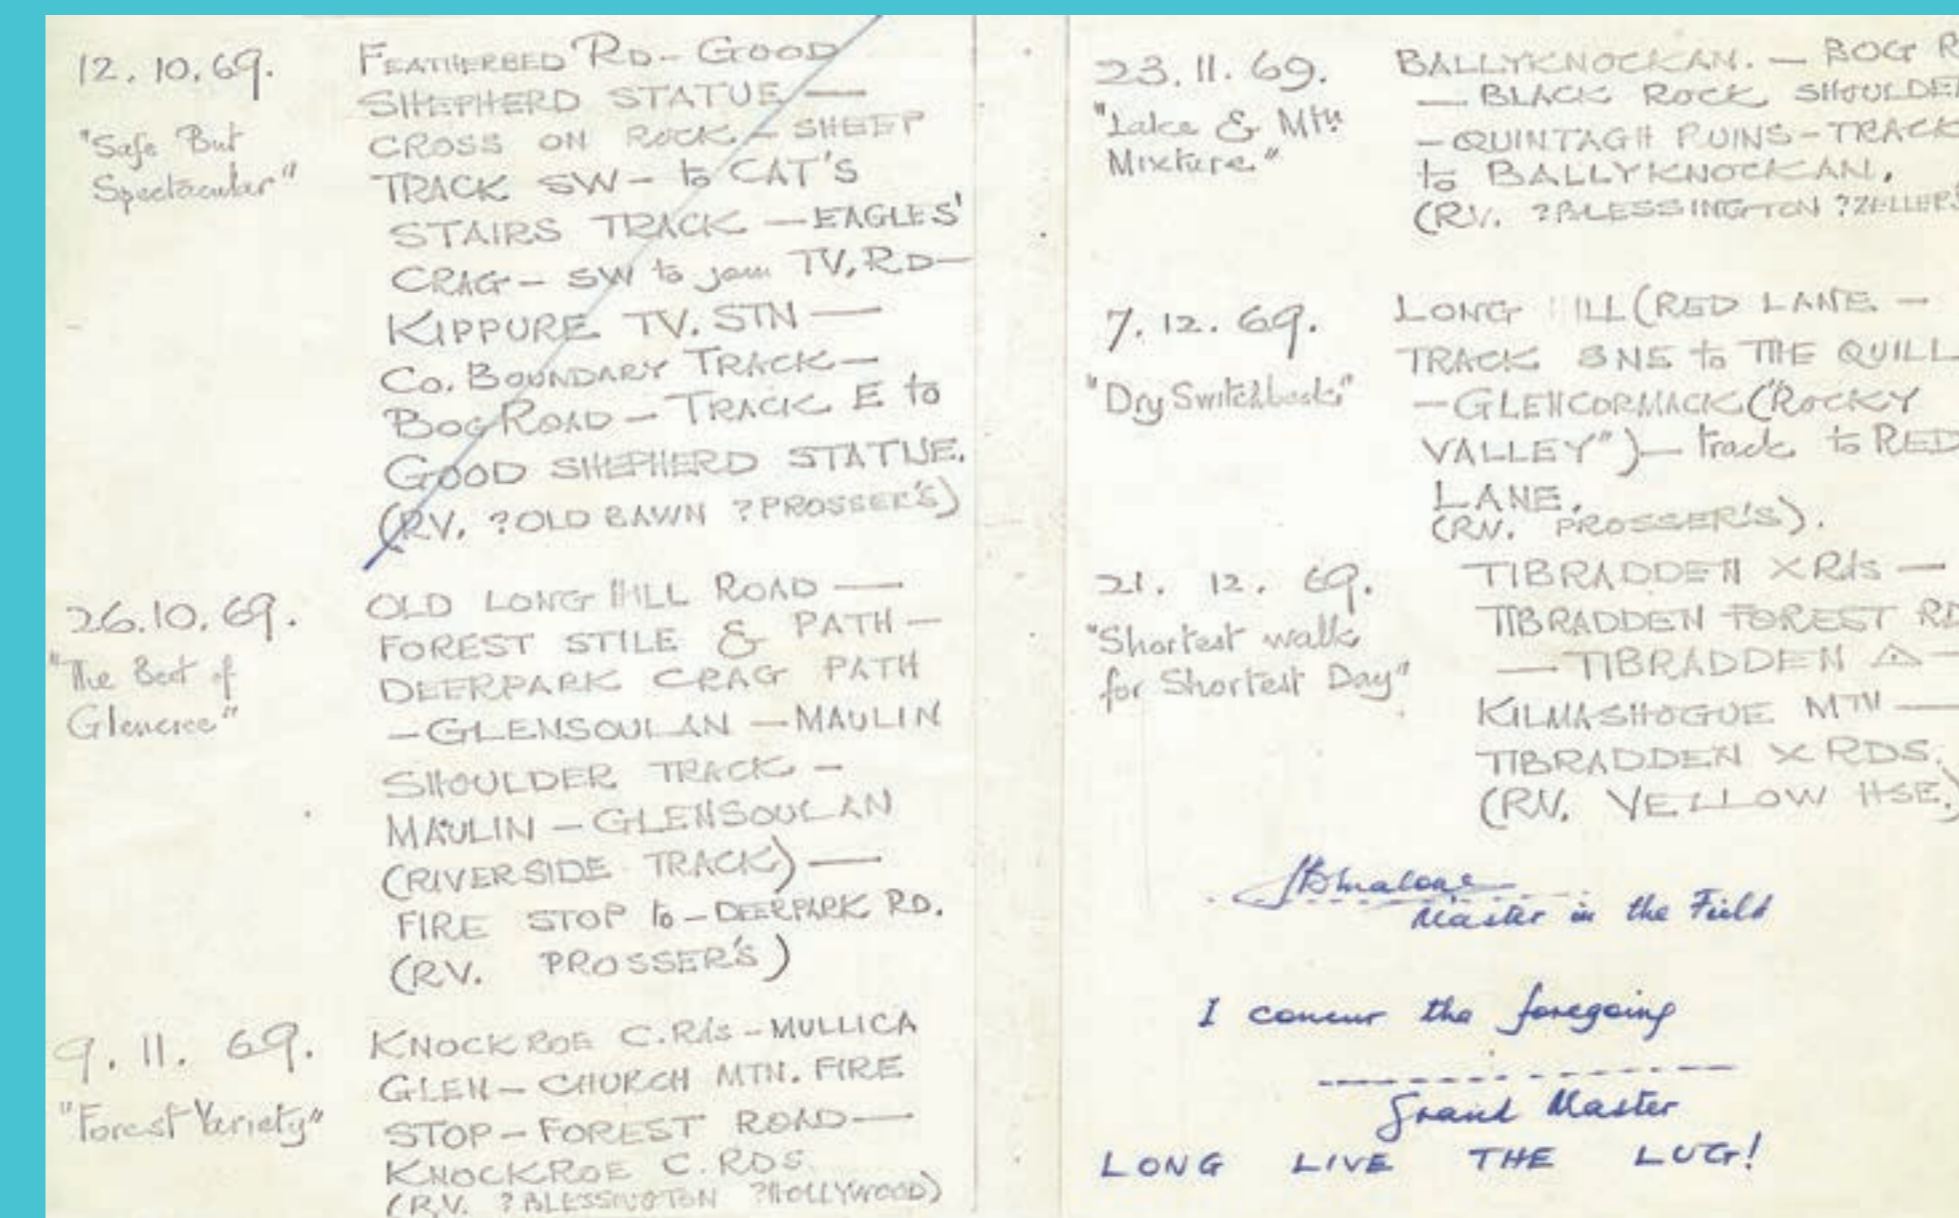 12.10.69.
"Safe But
Spectacular"
FEATHERBED RD - GOOD
SHEPHERD STATUE —
CROSS ON ROCK - SHEEP
TRACK SW - to CAT'S
STAIRS TRACK - EAGLES'
CRAG - SW to join TV. RD -
KIPPURE TV. STN —
Co. BOUNDARY TRACK -
BOG ROAD - TRACK E to
GOOD SHEPHERD STATUE.
(RV. ?OLD BAWN ?PROSSER'S)
26.10.69.
"The Best of
Glencree"
OLD LONG HILL ROAD —
FOREST STILE & PATH -
DEERPARK CRAG PATH
- GLENSOULAN - MAULIN
SHOULDER TRACK -
MAULIN - GLENSOULAN
(RIVERSIDE TRACK) —
FIRE STOP to - DEERPARK RD.
(RV. PROSSER'S)
9.11.69.
"Forest Variety"
KNOCKROE C.Rds - MULLICA
GLEN - CHURCH MTN. FIRE
STOP - FOREST ROAD —
KNOCKROE C.RDS.
(R.V. ?BLESSINGTON ?HOLLYWOOD)
23.11.69.
"Lake & Mtn
Mixture."
BALLYKNOCKAN. - BOG R
- BLACK ROCK SHOULDER
- QUINTAGH RUINS - TRACK
to BALLYKNOCKAN.
(RV. ?BLESSINGTON ?ZELLER'S
7.12.69.
"Dry Switchback"
LONG HILL (RED LANE -
TRACK to THE QUILL
- GLENCORMACK ("ROCKY
VALLEY") - track to RED
LANE.
(RV. PROSSER'S).
21. 12. 69.
"Shortest walk
for Shortest Day"
TIBRADDEN X Rds -
TIBRADDEN FOREST RD
- TIBRADDEN △ -
KILMASHOGUE MTN —
TIBRADDEN X RDS.
(RV. YELLOW HSE.)
Malone
Master in the Field
I concur the foregoing
Grand Master
LONG LIVE THE LUG!